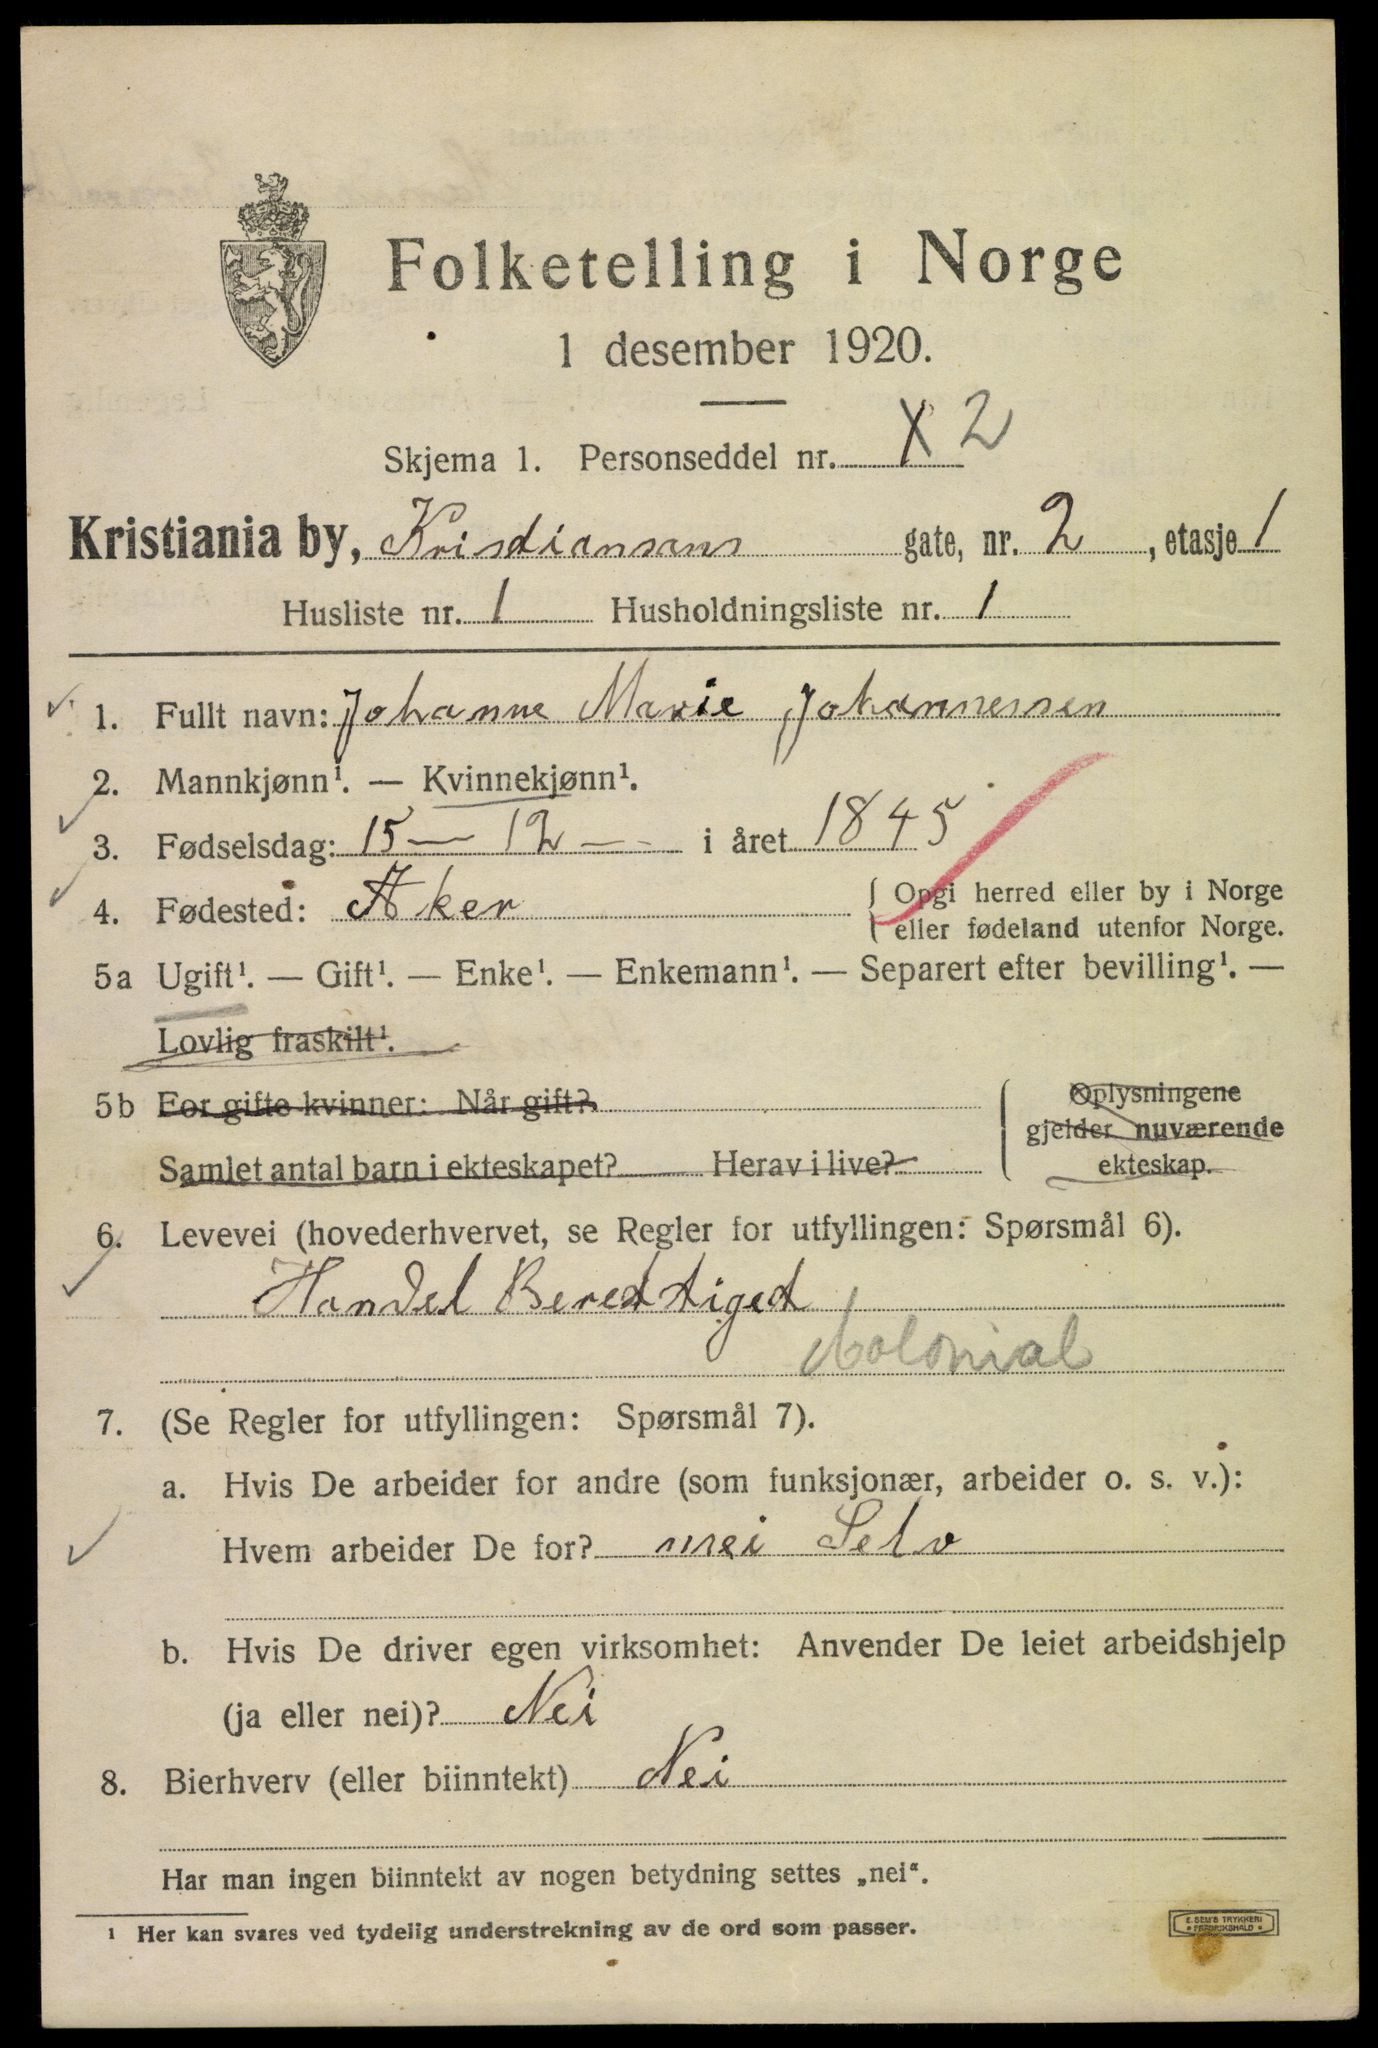 Folketelling i Norge
1 desember 1920.
Skjema 1. Personseddel nr. X 2
Kristiania by, Kristiansans gate, nr. 2, etasje 1
Husliste nr. 1 Husholdningsliste nr. 1
1. Fullt navn: Johanne Marie Johannessen
2. Mannkjønn¹. — Kvinnekjønn¹.
3. Fødselsdag: 15 — 12 — i året 1845
4. Fødested: Aker { Opgi herred eller by i Norge
eller fødeland utenfor Norge.
5a Ugift¹. — Gift¹. — Enke¹. — Enkemann¹. — Separert efter bevilling¹. —
Lovlig fraskilt¹.
5b For gifte kvinner: Når gift? { Oplysningene
gjelder nuværende
Samlet antal barn i ekteskapet? Herav i live? ekteskap.
6. Levevei (hovederhvervet, se Regler for utfyllingen: Spørsmål 6).
Handel Berettiget
Colonial
7. (Se Regler for utfyllingen: Spørsmål 7).
a. Hvis De arbeider for andre (som funksjonær, arbeider o. s. v.):
Hvem arbeider De for? mei Selv
b. Hvis De driver egen virksomhet: Anvender De leiet arbeidshjelp
(ja eller nei)? Nei
8. Bierhverv (eller biinntekt) Nei
Har man ingen biinntekt av nogen betydning settes „nei“.
¹ Her kan svares ved tydelig understrekning av de ord som passer.
E. SEM'S TRYKKERI
FREDRIKSHALD